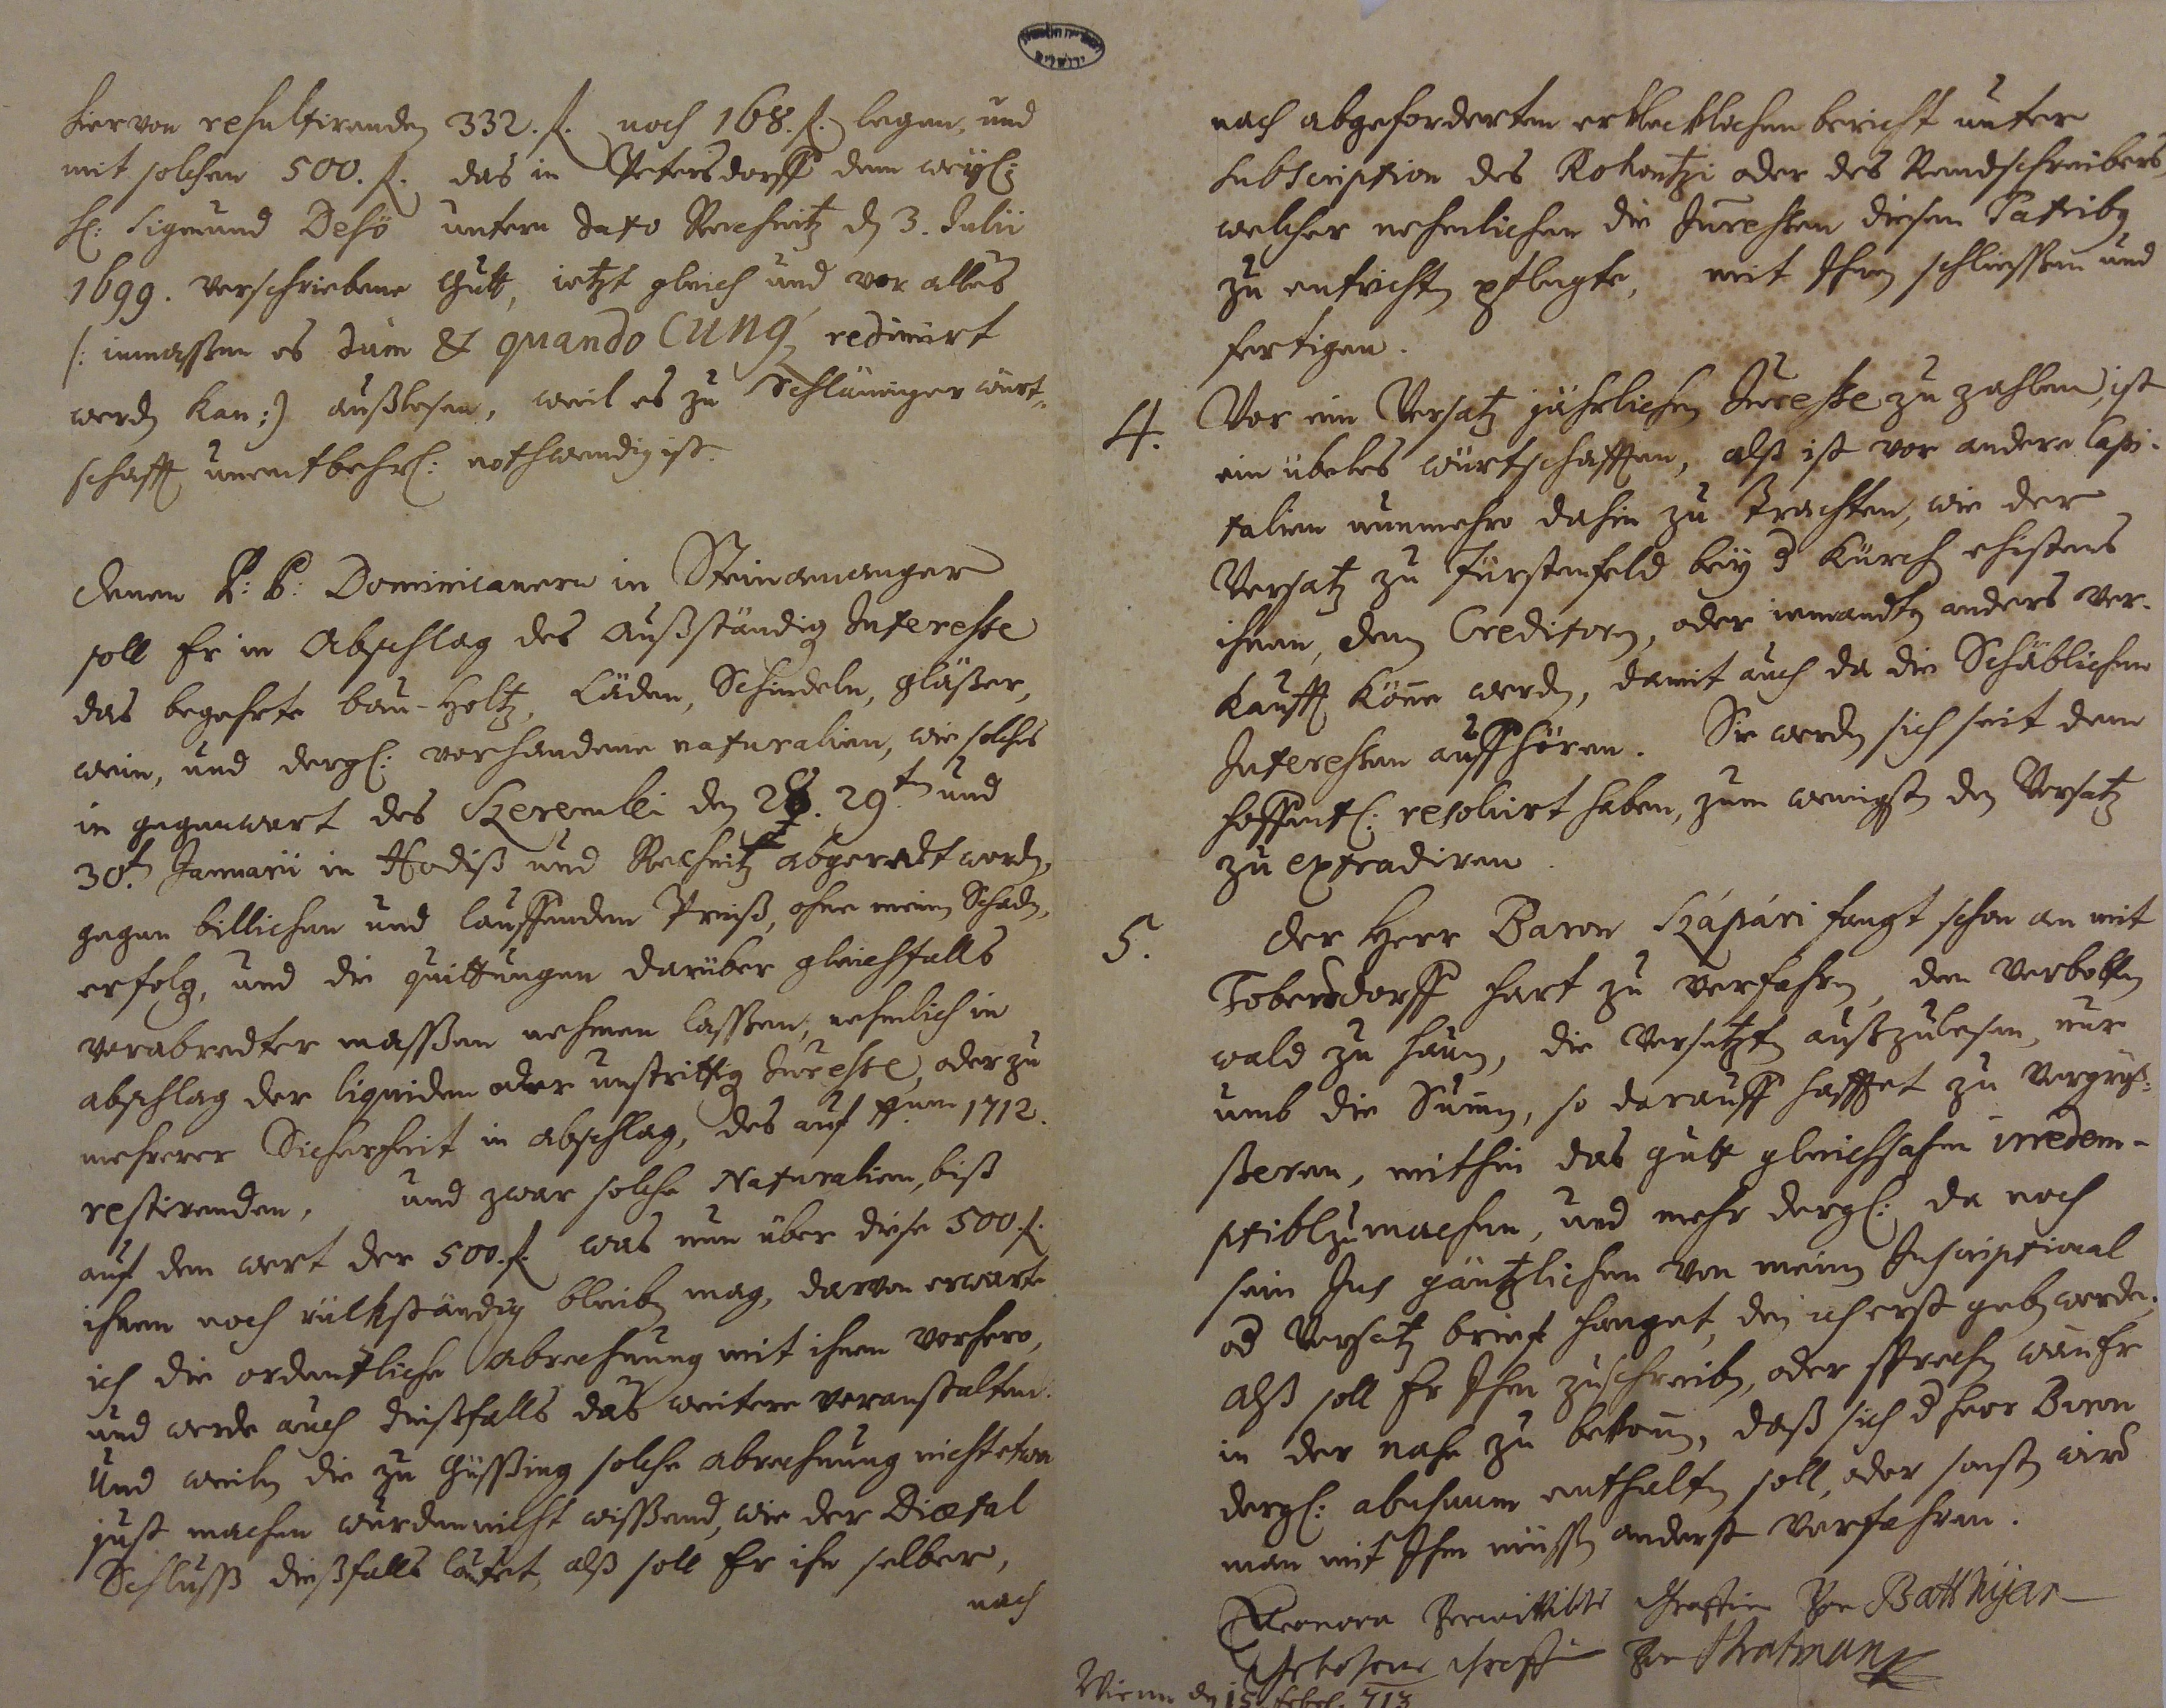 hiervon resultirenden 332. f. noch 168. f. legen, und
mit solchen 500. f. das in Petersdorff dem weyl:
H: Sigmund Desö untern dato Rechnitz dn 3. Julii
1699. verschriebene Gutt, ietzt gleich und vor alles
(: inmassen es dum & quando cunq redimirt
werdn kan :) außlesen, weil es zu Schläninger würt-
schafft unentbehrl: nothwendig ist.
denen P: P: Dominicanern in Steinamanger
soll Er in Abschlag des außständig Interesse
das begehrte bau-Holtz, Läden, Schindeln, gläßer,
wein, und dergl: vorhandene naturalien, wie solches
in gegenwart des Szerembli den 28. 29.tn und
30.tn Januarii in Hodiß und Rechnitz abgeredt wordn,
gegen billichen und lauffenden Preiß, ohne meinen Schadn,
erfolg, und die quittungen darüber gleichfalls
verabredter massen nehmen lassen, nehmlich in
abschlag der liquiden oder unstrittig Inresse, oder zu
mehrerer Sicherheit in abschlag, des auf 1712.
restirenden, und zwar solche Naturalien, biß
auf den wert der 500. f. was nun über diese 500 f.
ihnen noch rückständig bleibn mag, darvon erwarte
ich die ordentliche Abrechnung mit ihnen vorhero,
und werde auch dießfalls das weitere veranstalten.
Und weiln die zu Güssing solche abrechnung nicht etwa
just machen würden nicht wissend, wie der Diætal
Schluss dießfalls lautet, alß soll Er ihn selber,
nach
nach abgeforderten erklecklichen bericht unter
subscription des Rohontzi oder des Rendschreibers,
welcher nehmlichen die Inressen diesen Patribq
zu entrichtn pflegte, mit Ihnen schliessen und
fertigen.
4. Vor ein Versatz jährlichen Inresse zu zahlen, ist
ein übeles würtschafften, alß ist vor andere Capi-
talien nunmehro dahin zu trachten, wie der
Versatz zu Fürstenfeld bey d Kürch ehistens
ihnen, denn Creditorn, oder iemandtn anders ver-
kaufft könne werdn, damit auch da die Schäblichen
Interessen auffhören. Sie werdn sich seit dem
hoffentl: resolvirt haben, zum wenigstn den Versatz
zu extradiren.
5. der Herr Baron Szápári fangt schon an mit
Tobersdorff hart zu verfahrn, den verbottn
wald zu haun, die Versetztn außzulesen, nur
umb die Summ, so darauff hafftet zu vergrös-
seren, mithin das gutt gleichsahm irredem-
ptibl zu machen, und mehr dergl: da noch
sein Jus gäntzlichen von meinn Inscriptional
od Versatz brief hanget, den ich erst gebn werde,
alß soll Er Ihm zuschreibn, oder sprechn wann Er
in der nahe zu bekomm, daß sich d Herr Baron
dergl: abusuum enthaltn soll, oder sonstn wird
man mit Ihm müssn anderst verfahren.
Eleonora verwittibte Graffin von Batthyan
Gebohrne Graffin von Stratman
Wienn dn 15 febr. 713